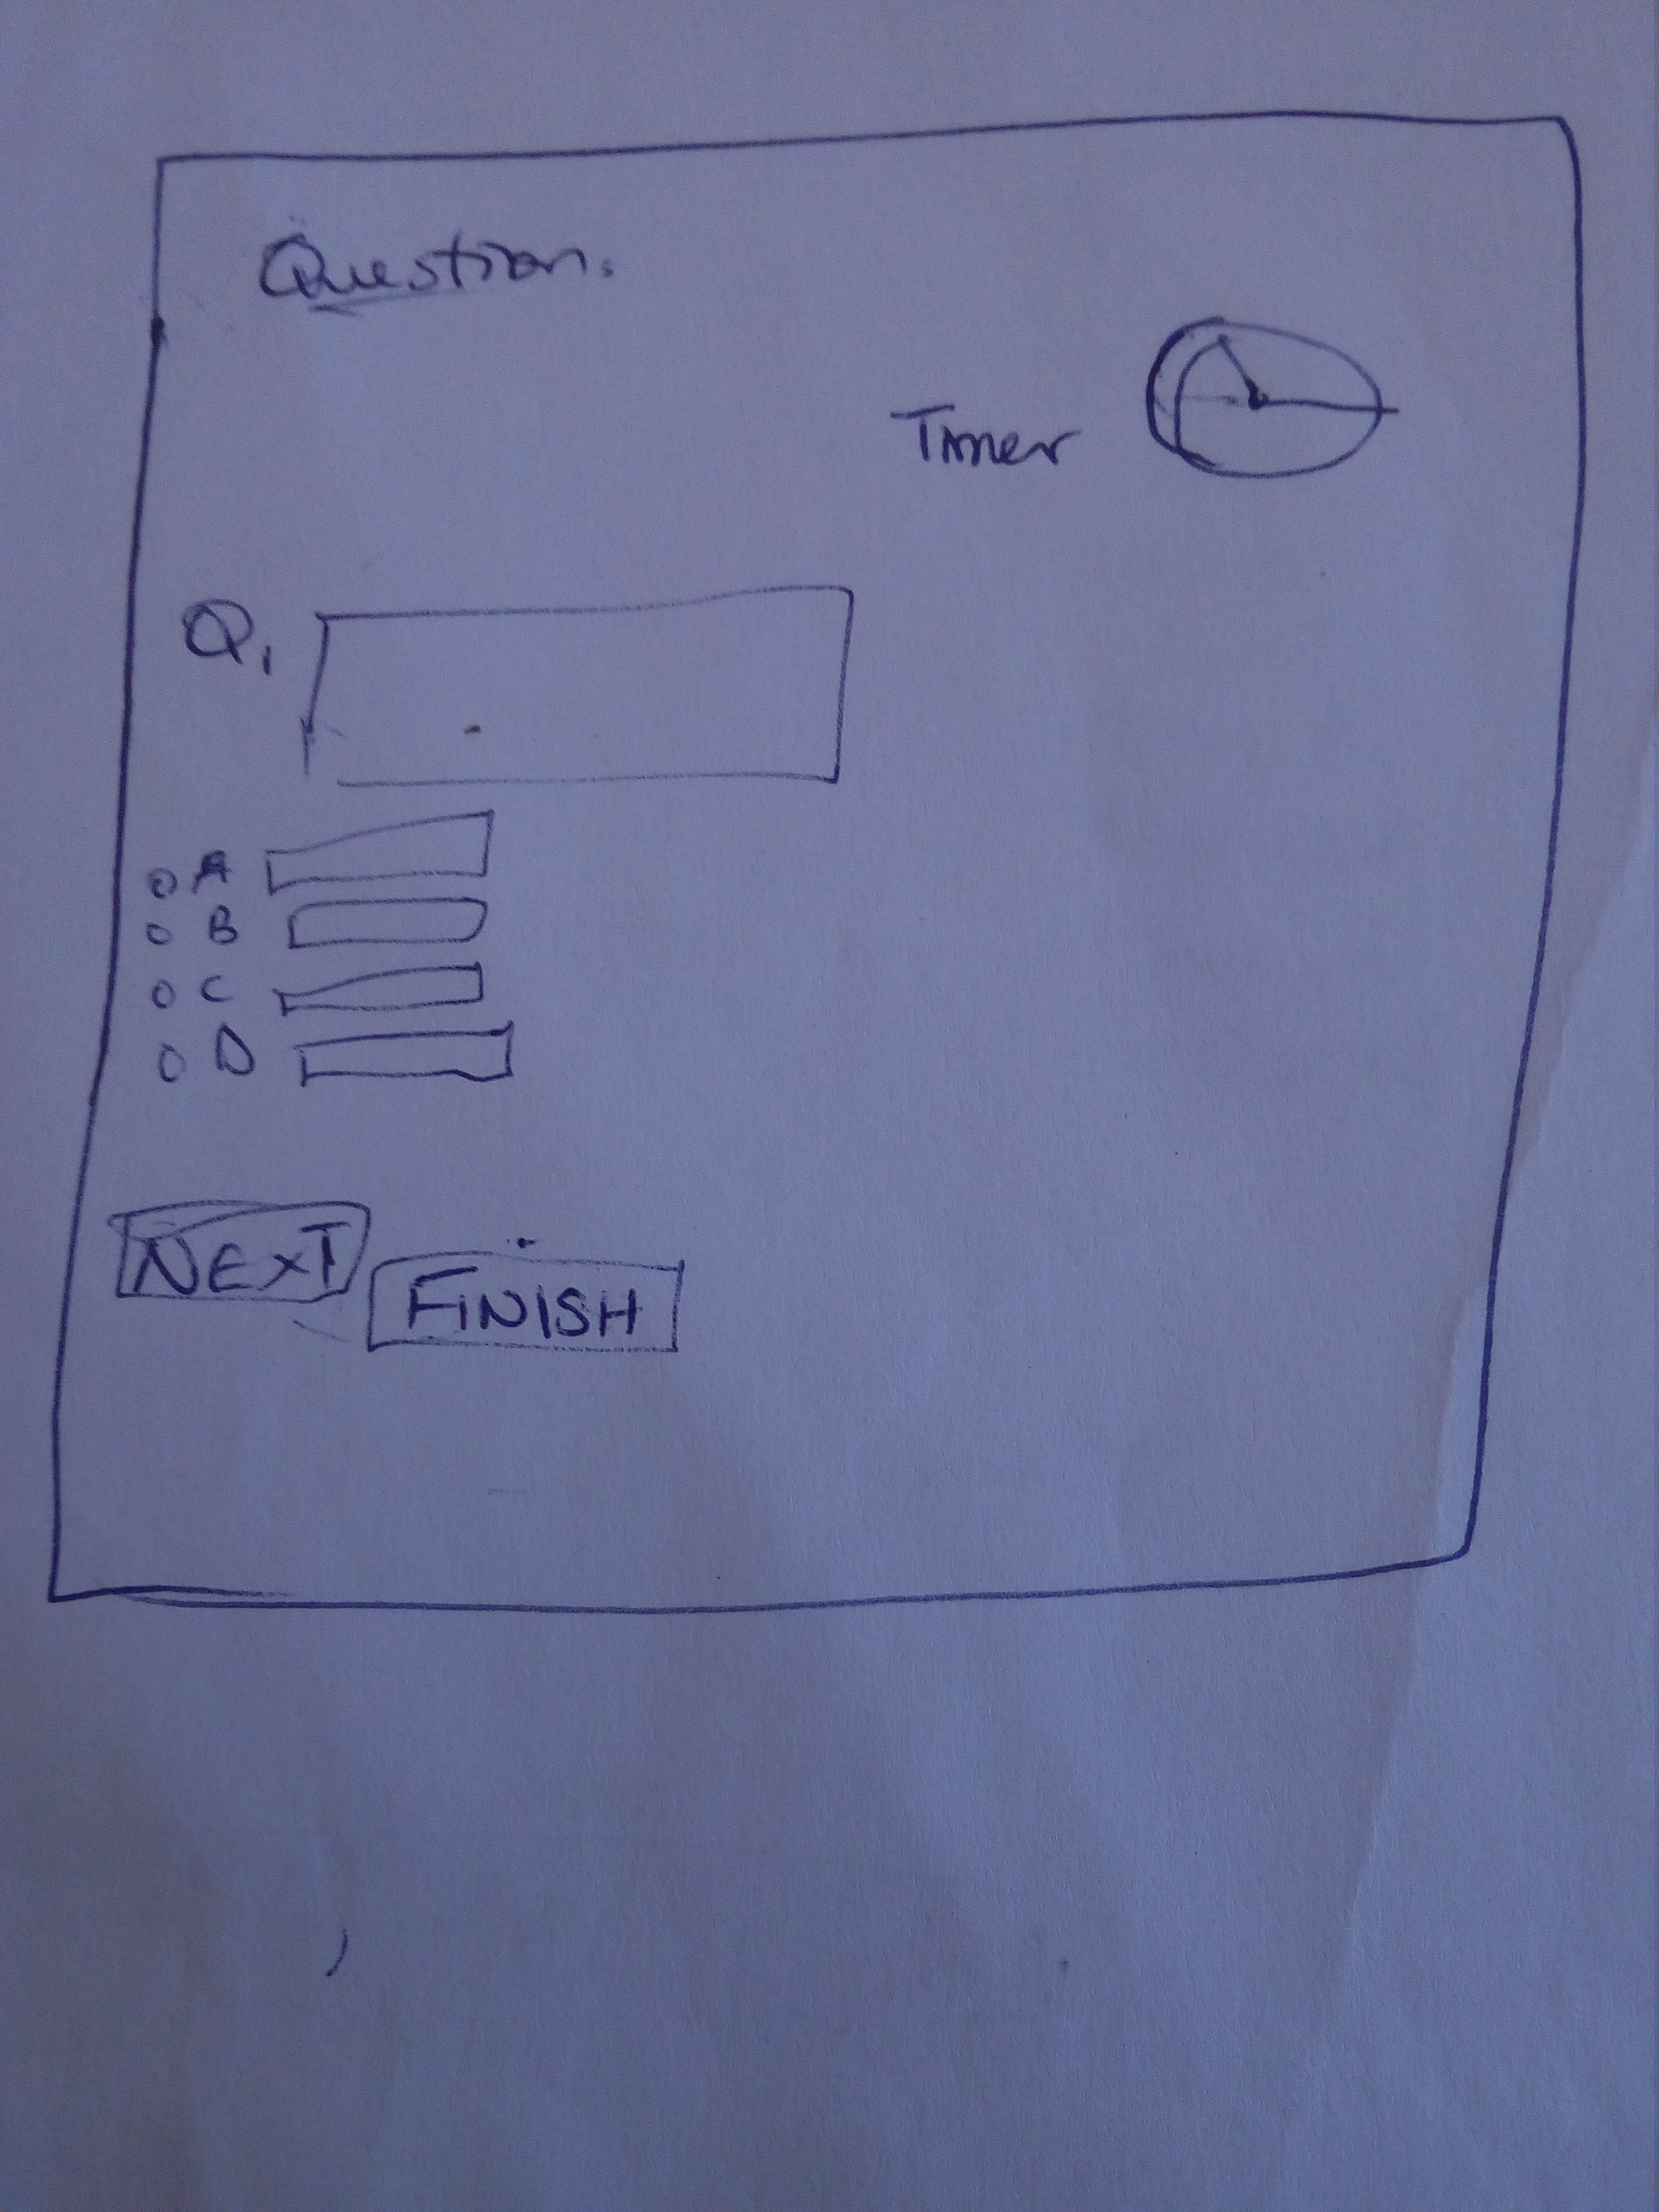 Question:
Timer
Q1
A
B
C
D
NEXT
FINISH